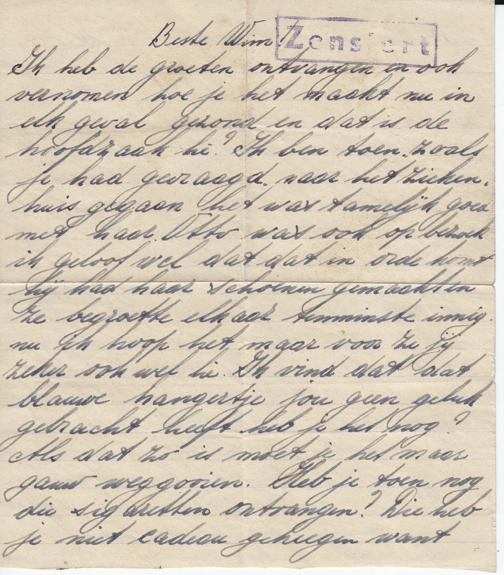 Beste Wim!
Zensiert
Ik heb de groeten ontvangen en ook
vernomen hoe je het maakt nu in
elk geval gezond en dat is de
hoofdzaak hè? Ik ben toen, zoals
je had gevraagd, naar het zieken-
huis gegaan het was tamelijk goed
met haar. Otto was ook op bezoek
ik geloof wel dat dat in orde komt
hij had haar schoenen gemaakt en
ze begroette elkaar tenminste innig.
nu ik hoop het maar voor ze jij
zeker ook wel hè. Ik vind dat dat
blauwe hangertje jou geen geluk
gebracht heeft heb je het nog?
Als dat zo is moet je het maar
gauw weggooien. Heb je toen nog
die sigaretten ontvangen? Die heb
je niet cadeau gekregen want